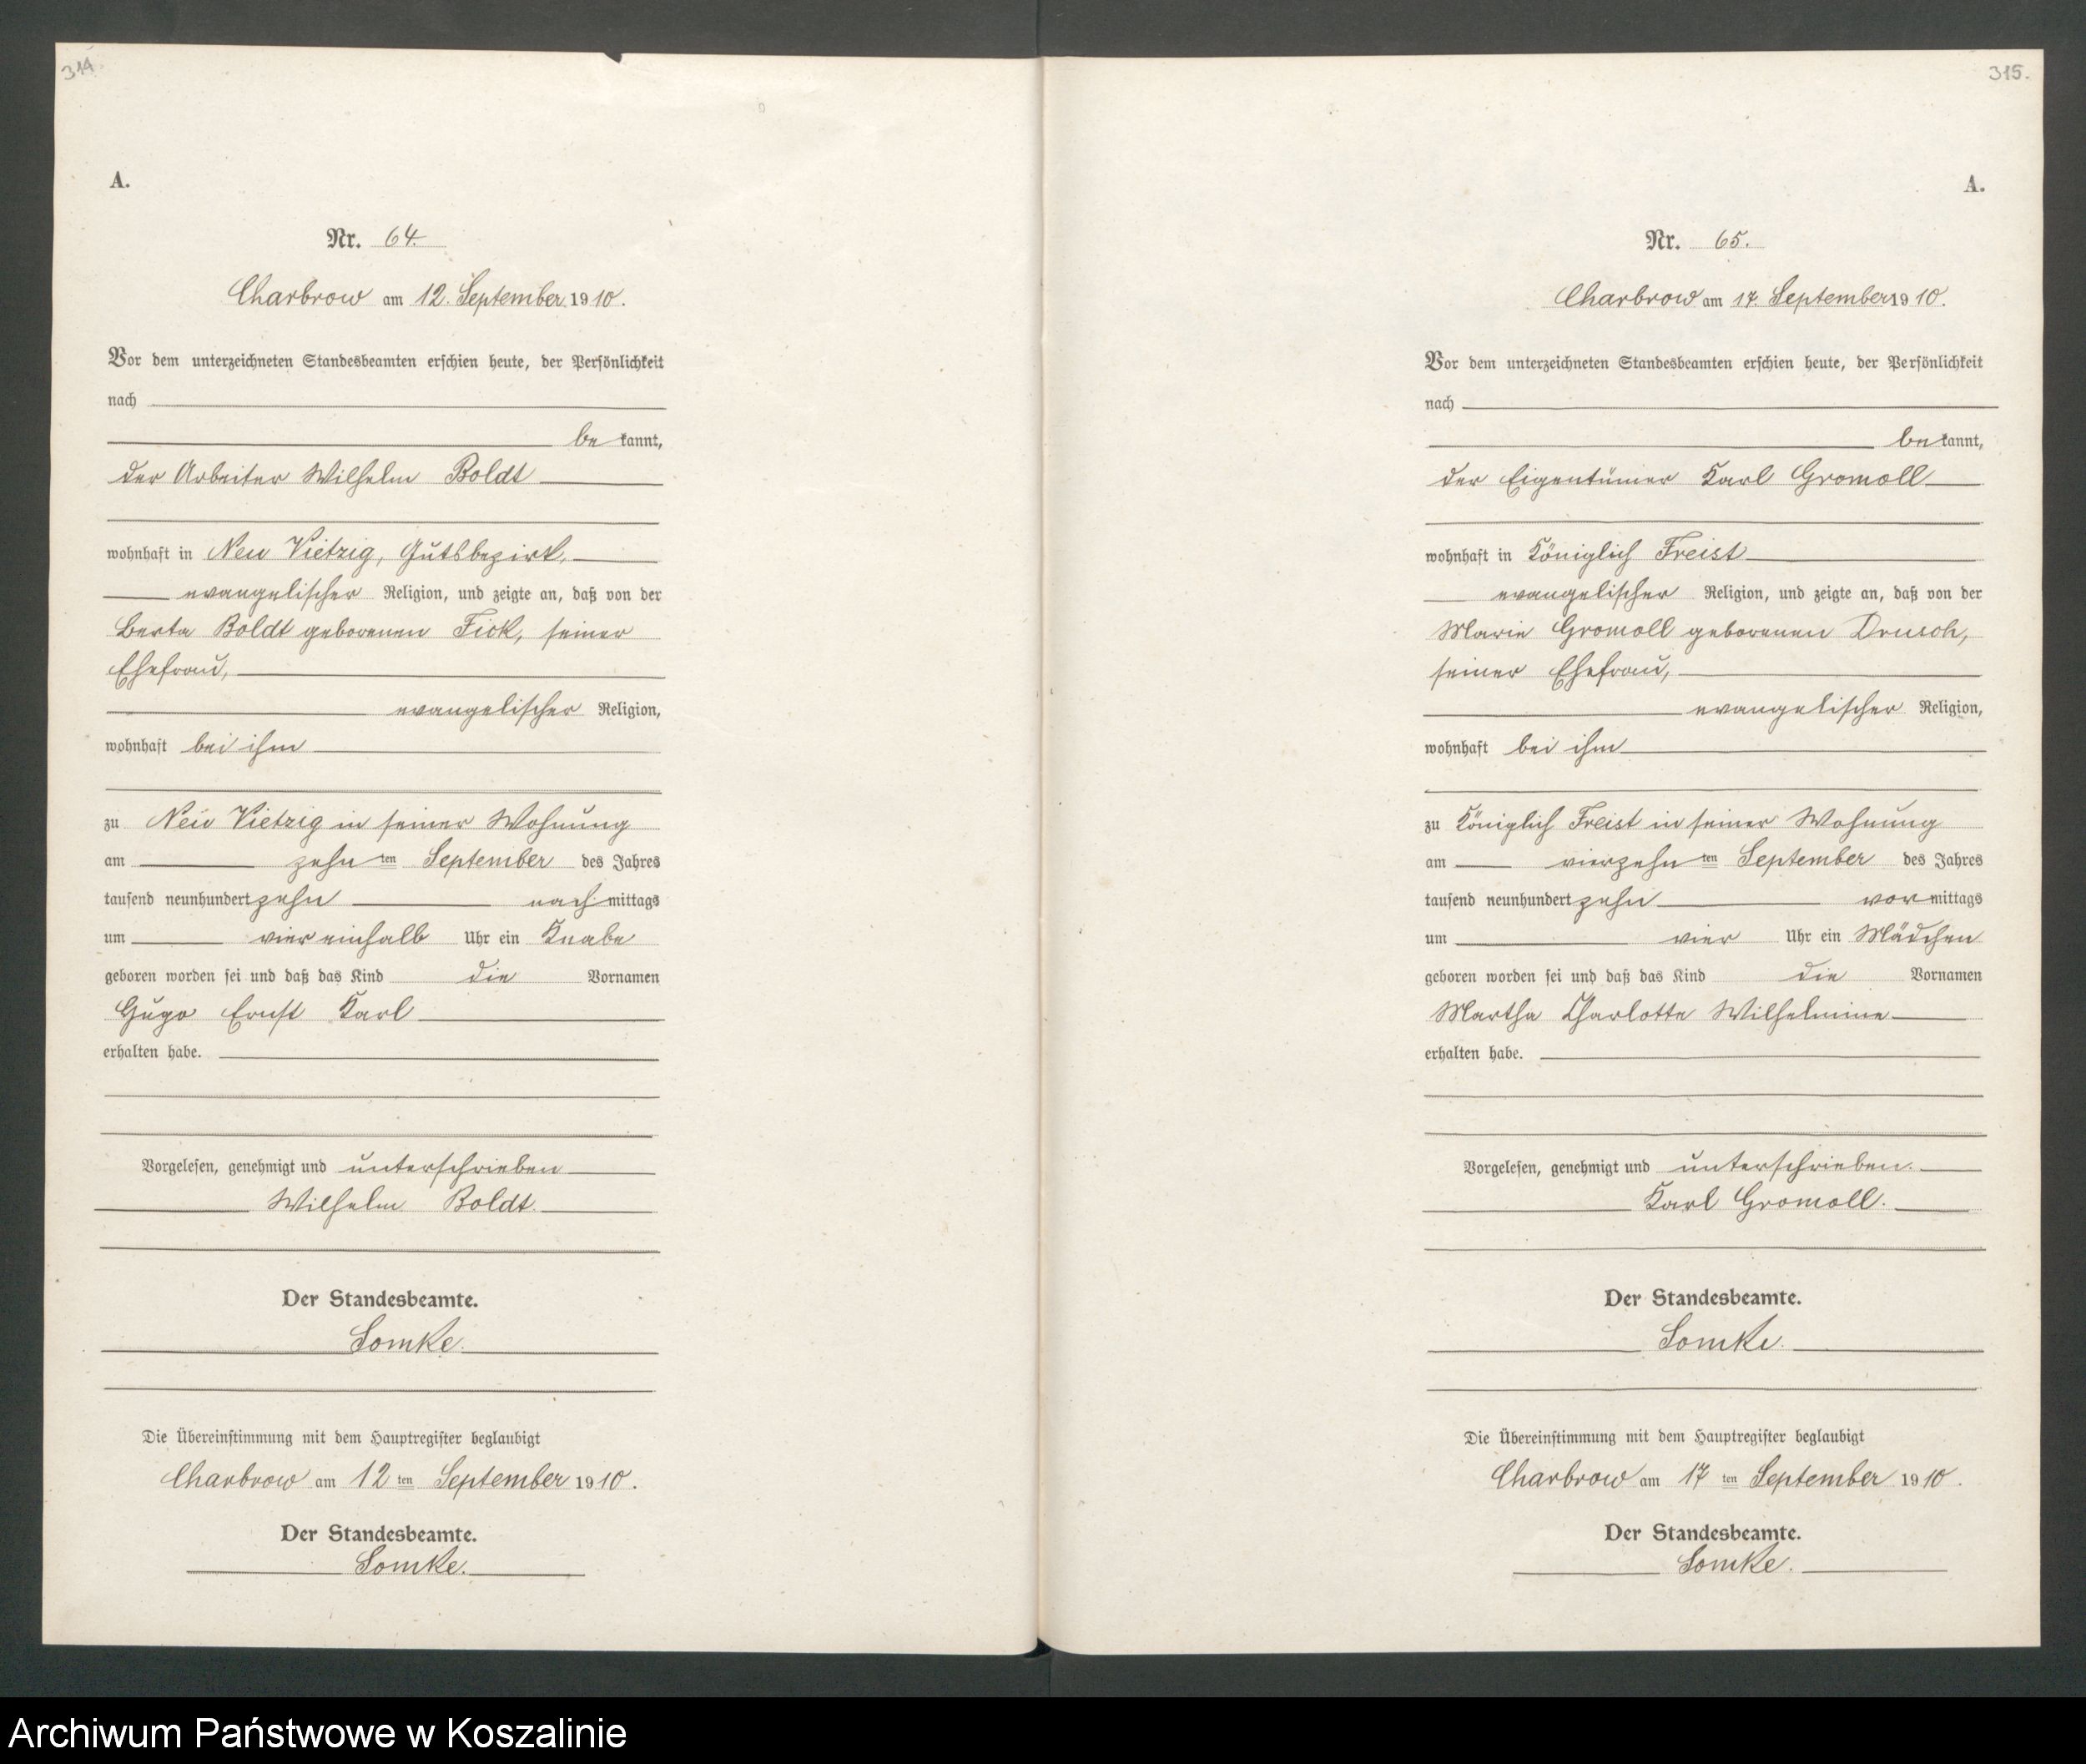 314.
A.
Nr. 64.
Charbrow am 12. September 1910.
Vor dem unterzeichneten Standesbeamten erschien heute, der Persönlichkeit
nach
be kannt,
der Arbeiter Wilhelm Boldt
wohnhaft in Neu Vietzig, Gutsbezirk,
evangelischer Religion, und zeigte an, daß von der
Berta Boldt geborenen Fick, seiner
Ehefrau,
evangelischer Religion,
wohnhaft bei ihm
zu Neu Vietzig in seiner Wohnung
am zehn ten September des Jahres
tausend neunhundert zehn nach mittags
um vier einhalb Uhr ein Knabe
geboren worden sei und daß das Kind die Vornamen
Hugo Ernst Karl
erhalten habe.
Vorgelesen, genehmigt und unterschrieben
Wilhelm Boldt.
Der Standesbeamte.
Somke.
Die Übereinstimmung mit dem Hauptregister beglaubigt
Charbrow am 12 ten September 1910.
Der Standesbeamte.
Somke.
315.
A.
Nr. 65.
Charbrow am 17. September 1910.
Vor dem unterzeichneten Standesbeamten erschien heute, der Persönlichkeit
nach
be kannt,
der Eigentümer Karl Gromoll
wohnhaft in Königlich Freist
evangelischer Religion, und zeigte an, daß von der
Marie Gromoll geborenen Drusch,
seiner Ehefrau,
evangelischer Religion,
wohnhaft bei ihm
zu Königlich Freist in seiner Wohnung
am vierzehn ten September des Jahres
tausend neunhundert zehn vor mittags
um vier Uhr ein Mädchen
geboren worden sei und daß das Kind die Vornamen
Martha Charlotte Wilhelmine
erhalten habe.
Vorgelesen, genehmigt und unterschrieben.
Karl Gromoll.
Der Standesbeamte.
Somke.
Die Übereinstimmung mit dem Hauptregister beglaubigt
Charbrow am 17 ten September 1910.
Der Standesbeamte.
Somke.
Archiwum Państwowe w Koszalinie